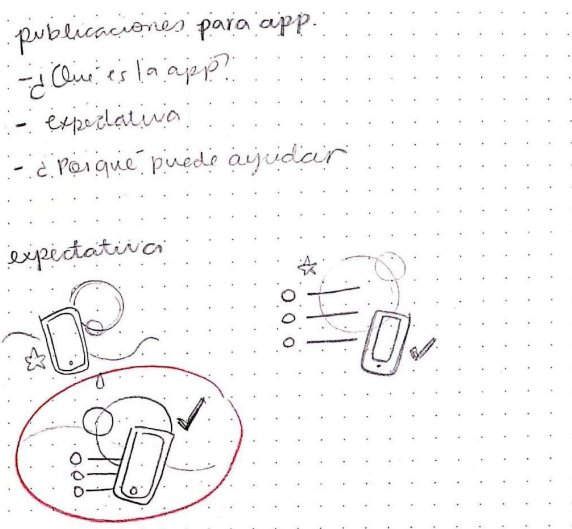 publicaciones para app.
- ¿Qué es la app?
- expectativa
- ¿Porqué puede ayudar
expectativa